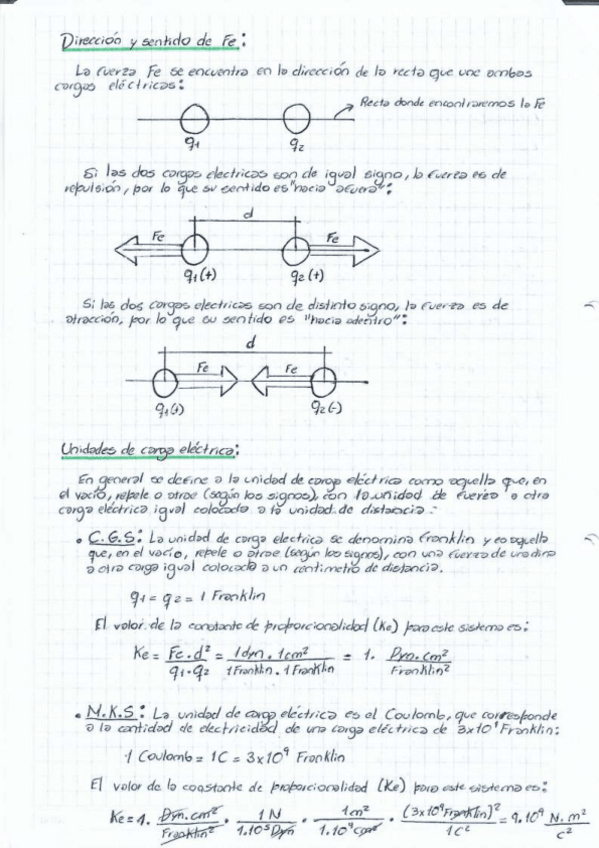 Dirección y sentido de Fe:
La fuerza Fe se encuentra en la dirección de la recta que une ambas
cargas eléctricas:
Recta donde encontraremos la Fe
q1 q2
Si las dos cargas electricas son de igual signo, la fuerza es de
repulsión, por lo que su sentido es "hacia afuera":
d
Fe Fe
q1(+) q2(+)
Si las dos cargas electricas son de distinto signo, la fuerza es de
atracción, por lo que su sentido es "hacia adentro":
d
Fe Fe
q1(+) q2(-)
Unidades de carga eléctrica:
En general se define a la unidad de carga eléctrica como aquella que, en
el vacío, repele o atrae (según los signos), con la unidad de fuerza a otra
carga eléctrica igual colocada a la unidad de distancia.-
• C.G.S: La unidad de carga electrica se denomina Franklin y es aquella
que, en el vacío, repele o atrae (según los signos), con una fuerza de una dina
a otra carga igual colocada a un centimetro de distancia.
q1 = q2 = 1 Franklin
El valor de la constante de proporcionalidad (Ke) para este sistema es:
Ke = Fe . d² / q1 . q2 = 1 dyn . 1 cm² / 1 Franklin . 1 Franklin = 1 . Dyn . cm² / Franklin²
• M.K.S: La unidad de carga eléctrica es el Coulomb, que corresponde
a la cantidad de electricidad de una carga eléctrica de 3x10⁹ Franklin:
1 Coulomb = 1C = 3x10⁹ Franklin
El valor de la constante de proporcionalidad (Ke) para este sistema es:
Ke = 1 . Dyn . cm² / Franklin² . 1 N / 1.10⁵ Dyn . 1m² / 1.10⁴ cm² . (3x10⁹ Franklin)² / 1C² = 9.10⁹ N . m² / C²